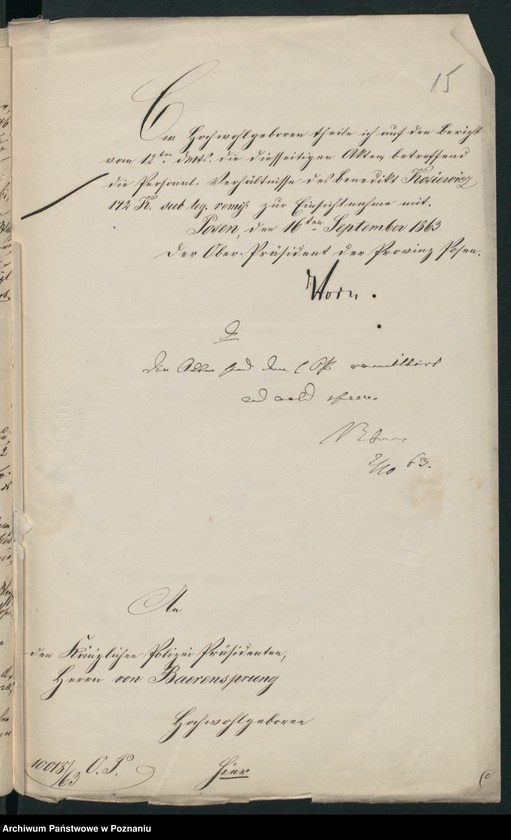 15
Ew Hochwohlgeboren theile ich auf den Bericht
vom 12ten d. Mts. die diesseitigen Akten betreffend
die Personal-Verhältnisse des Benedikt Kosiewicz
142 K. sub leg. remis. zur Einsichtnahme mit.
Posen, den 16ten September 1863
Der Ober-Präsident der Provinz Posen.
Horn.
Die Akten sind dem
63.
An
den Königlichen Polizei Präsidenten,
Herrn von Baerensprung
Hochwohlgeboren
10018/63 O. P.
Hier
Archiwum Państwowe w Poznaniu